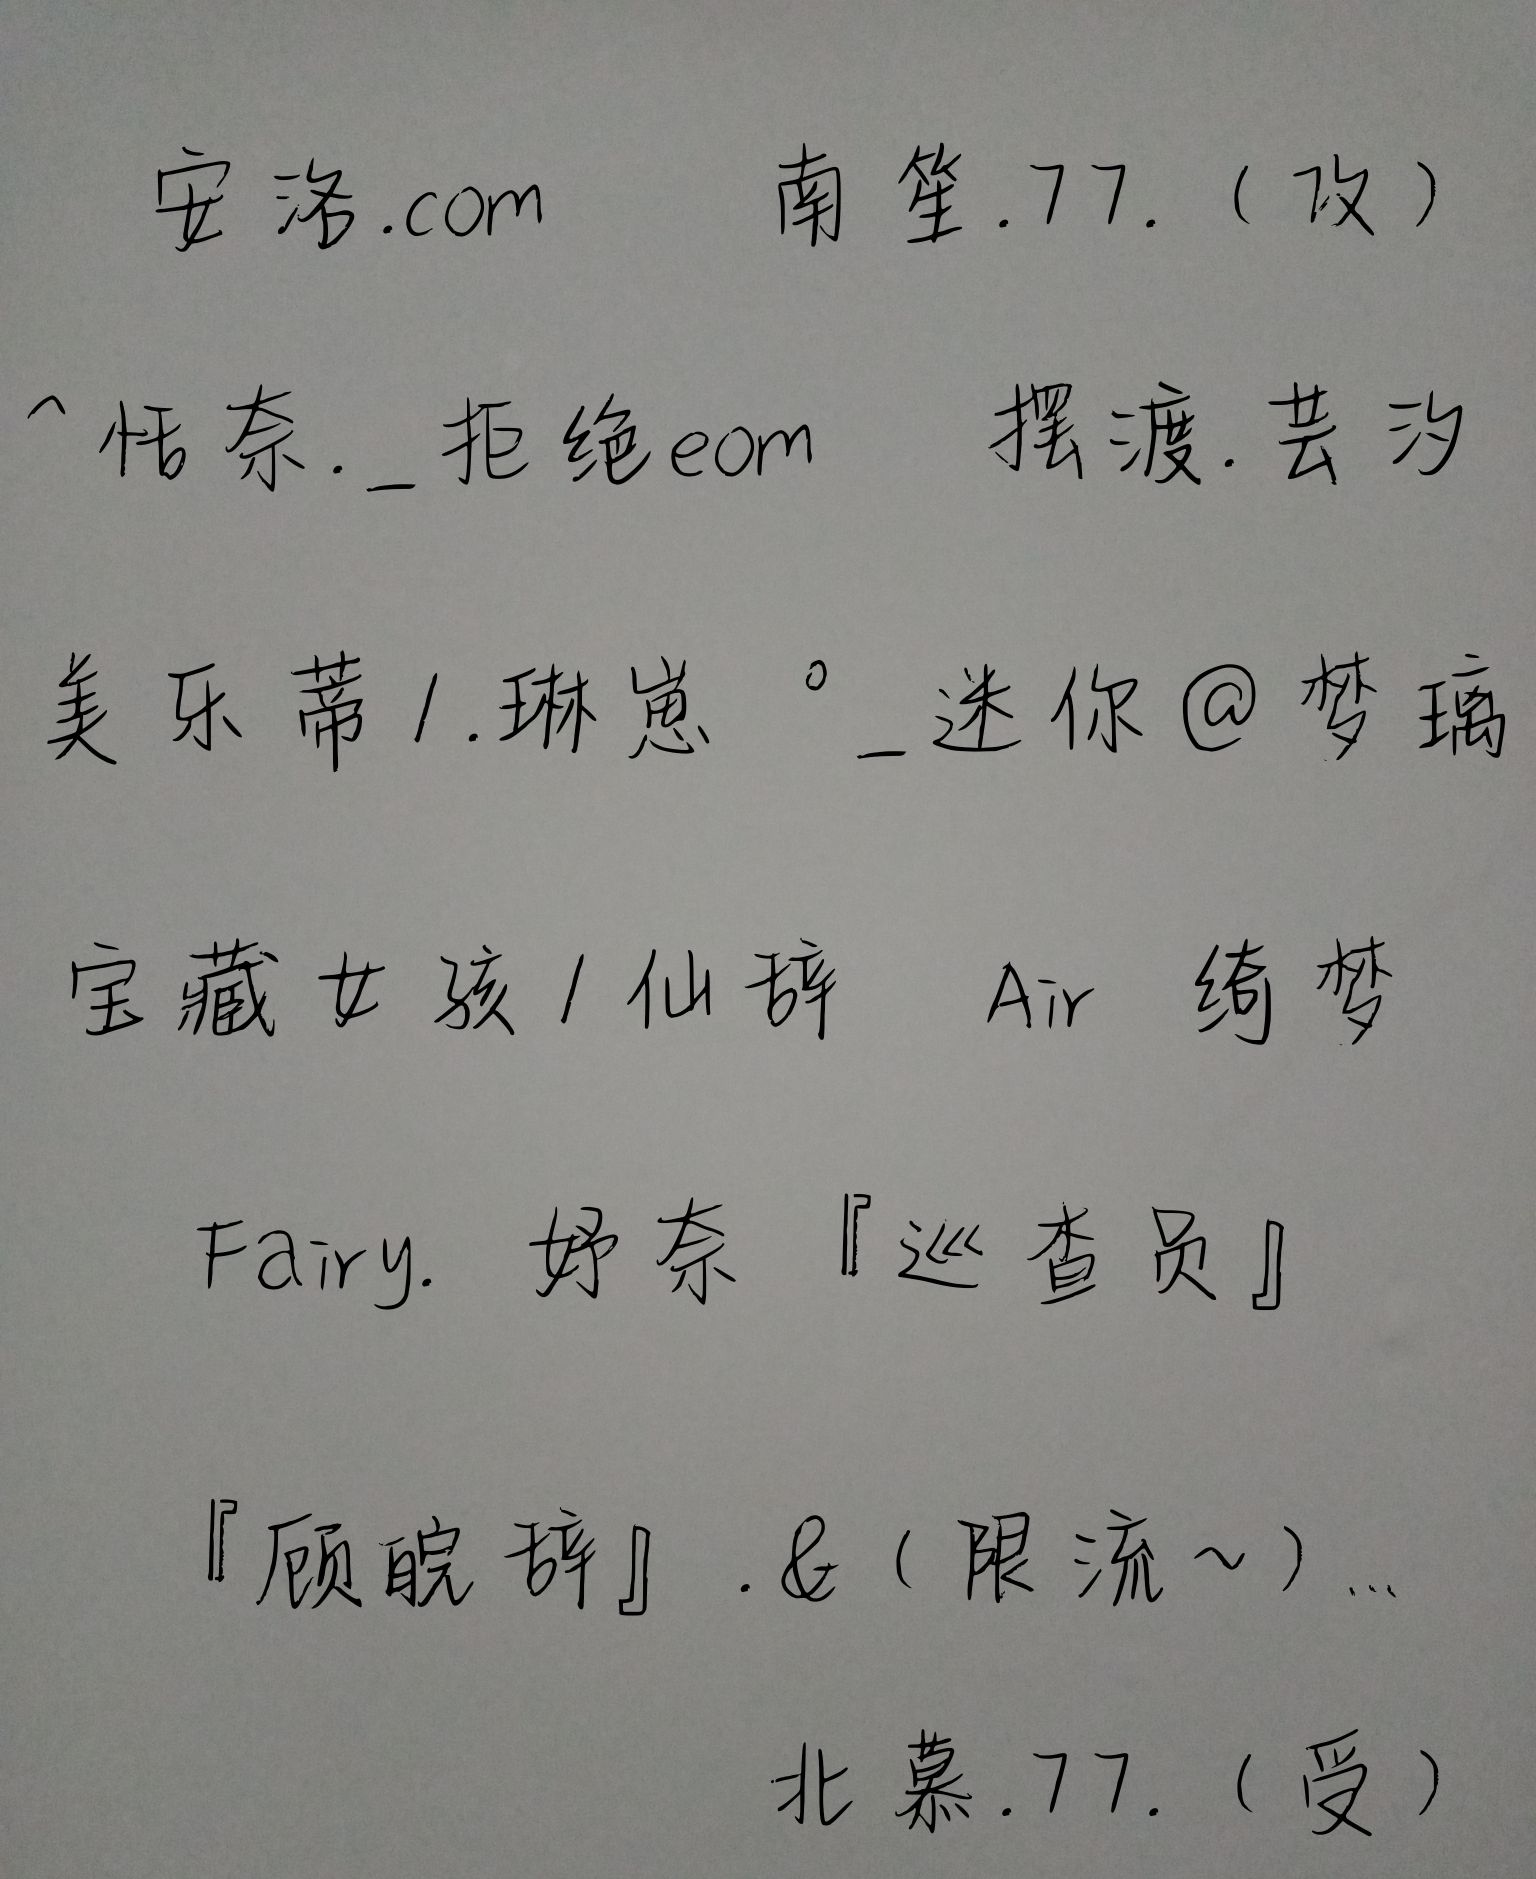 安洛.com 南笙.77.(攻)
^恬奈._拒绝eom 摆渡.芸汐
美乐蒂/.琳崽 °_迷你@梦璃
宝藏女孩/仙辞 Air 绮梦
Fairy. 妤奈『巡查员』
『顾皖辞』.&(限流~)...
北慕.77.(受)